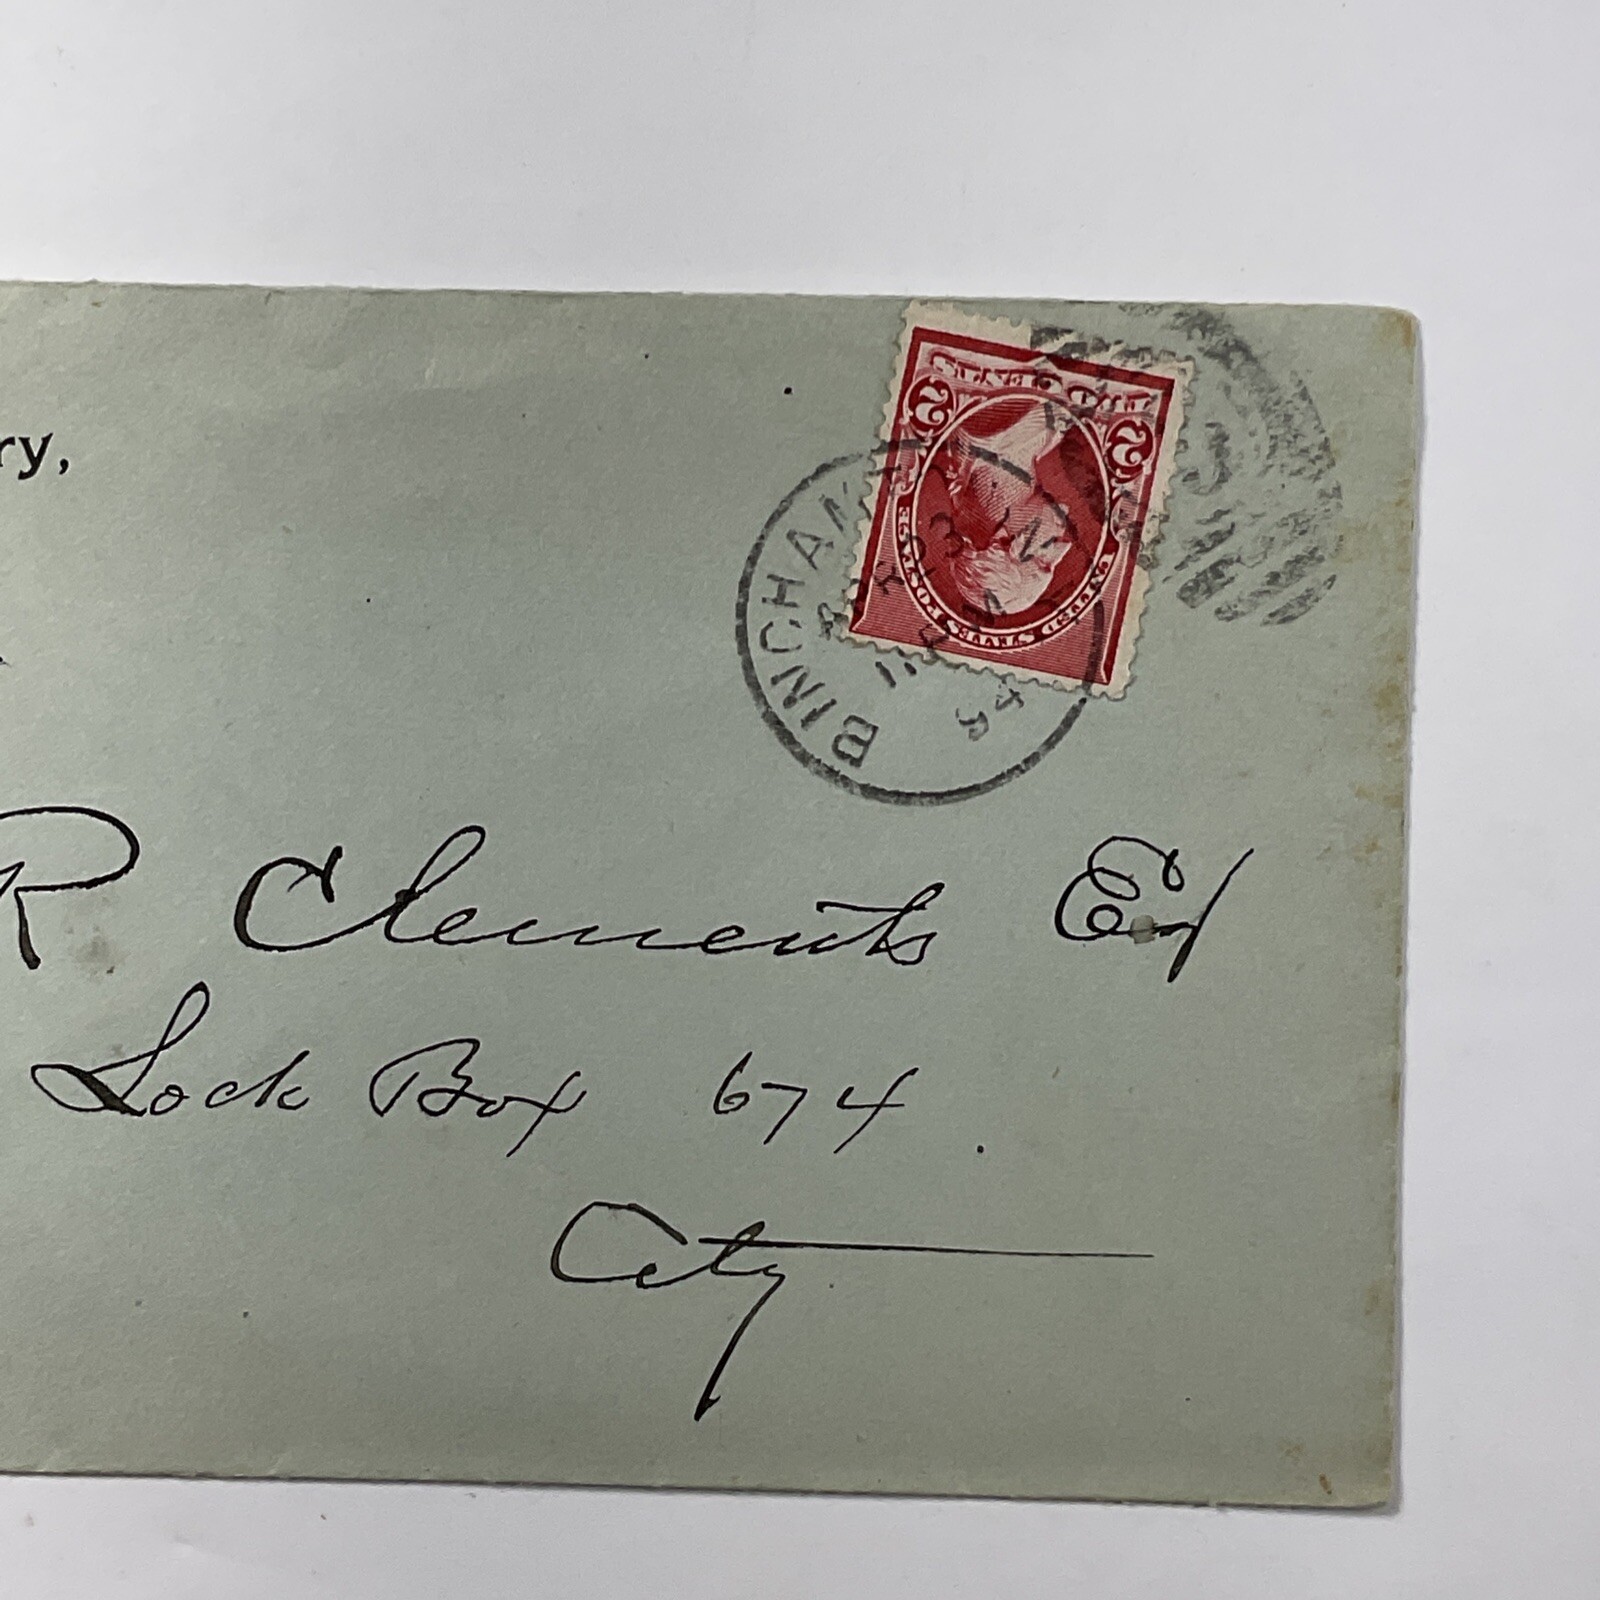 ry,
2 2
UNITED STATES POSTAGE
BINGHAMTON
94
3
R Clements Esq
Lock Box 674.
City